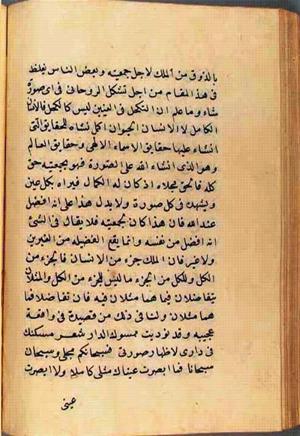 بالذوق من الملك لاجل جمعيته وبعض الناس يغلط
في هذا المقام من اجل تشكل الروحاني في اى صورة
شاء وما علم ان التكحل في العينين ليس كالكحل فالانسان
الكامل لا الانسان الحيوان اكمل نشاه للحقايق التي
انشاء عليها حقايق الاسماء الالهي وحقايق العالم
وهو الذى انشاء الله على الصورة فهو بجمعيته حق
كله فالحق مجلاه اذ كان له الكمال فيراه بكل عين
ويشهده في كل صورة ولا يدل هذا على انه افضل
عند الله فان هذا كان بجمعيته فلا يقال في الشئ
انه افضل من نفسه وانما يقع الفضيله بين الغيرين
ولا غير فان الملك جزء من الانسان فالجزء من
الكل والكل من الجزء ما ليس للجزء من الكل والمثلان
يتفاضلان فيما هما مثلان فيه فان تفاضلا فما
هما مثلان ولنا في ذلك من قصيدة في واقعة
عجيبه وقد نوديت ممسوك الدار شعر مسكتك
في دارى لاظهار صورتى فسبحانكم مجلى وسبحان
سبحانا فما ابصرت عيناك مثلى كاملا ولا ابصرت
عينى